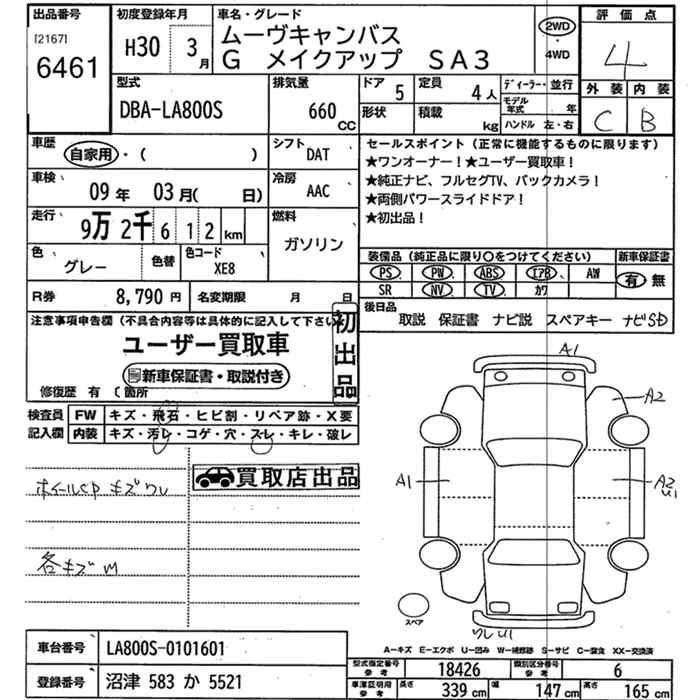 出品番号 初度登録年月 車名・グレード 評価点
[2167] H30 3月 ムーヴキャンバス 2WD・4WD 4
6461 G メイクアップ SA3
型式 排気量 ドア 5 定員 4人 ディーラー・並行 外装 内装
DBA-LA800S 660 CC 形状 積載 kg モデル年式 年 C B
ハンドル 左・右
車歴 自家用・( ) シフト DAT セールスポイント (正常に機能するものに限ります)
★ワンオーナー!★ユーザー買取車!
車検 09年 03月( 日) 冷房 AAC ★純正ナビ、フルセグTV、バックカメラ!
★両側パワースライドドア!
走行 9万2千612km 燃料 ガソリン ★初出品!
色 グレー 色替 色コード XE8 装備品(純正品に限り○をつけてください) 新車保証書
PS PW ABS エアB AW 有・無
R券 8,790円 名変期限 月 日 SR NV TV カワ
注意事項申告欄(不具合内容等は具体的に記入して下さい 後日品
初出品 取説 保証書 ナビ説 スペアキー ナビSD
ユーザー買取車
新車保証書・取説付き
修復歴 有 〔箇所
検査員記入欄 FW キズ・飛石・ヒビ割・リペア跡・X要
内装 キズ・汚レ・コゲ・穴・スレ・キレ・破レ
買取店出品
ホイールCP キズワレ
各キズM
A1
A2
A1
A2
U1
スペア
ワレU1
A=キズ E=エクボ U=凹み W=補修跡 S=サビ C=腐食 XX=交換済
車台番号 LA800S-0101601 型式指定番号 参考 18426 類別区分番号 参考 6
登録番号 沼津 583 か 5521 車庫証明用 参考 長さ 339cm 幅 147cm 高さ 165cm